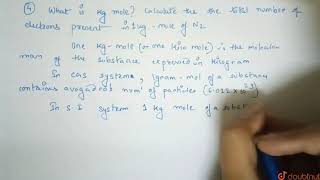 ④ What is kg mole? Calculate the the total number of
electrons present in 1 kg-mole of N2
One kg-mole (or one kilo mole) is the molecular
mass of the substance expressed in kilogram
In cas systems, 1gram-mol of a substance
contains avogadro's num' of particles (6.022 x 10²³)
In S.I system 1 kg mole of a subst
doubtnut